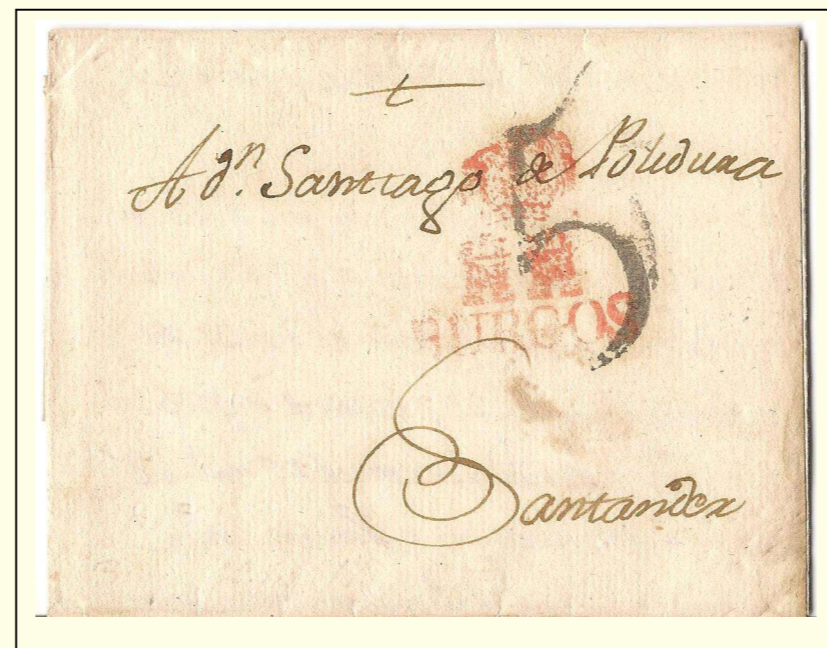 A dn. Santiago de Polidura
5
BURGOS
Santander